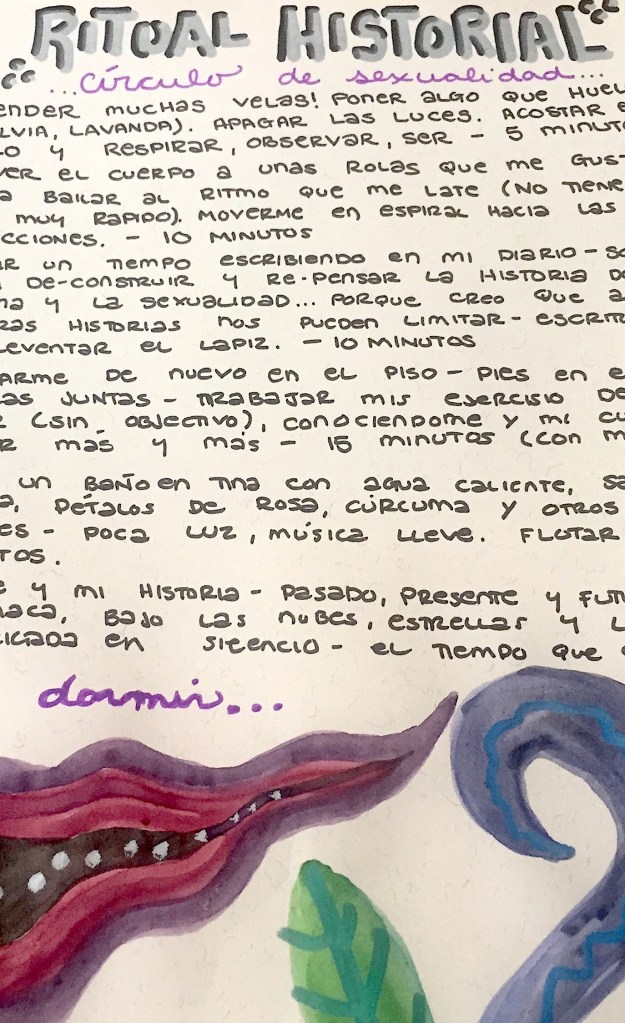 "RITUAL HISTORIAL"
...círculo de sexualidad...
ENDER MUCHAS VELAS! PONER ALGO QUE HUEL
LVIA, LAVANDA). APAGAR LAS LUCES. ACOSTAR E
LO Y RESPIRAR, OBSERVAR, SER - 5 MINUTO
VER EL CUERPO A UNAS ROLAS QUE ME GUS
A BAILAR AL RITMO QUE ME LATE (NO TIENE
MUY RAPIDO). MOVERME EN ESPIRAL HACIA LAS
CCIONES. - 10 MINUTOS
AR UN TIEMPO ESCRIBIENDO EN MI DIARIO - SO
DE-CONSTRUIR Y RE-PENSAR LA HISTORIA DE
MA Y LA SEXUALIDAD... PORQUE CREO QUE A
RAS HISTORIAS NOS PUEDEN LIMITAR - ESCRIT
LEVENTAR EL LAPIZ. - 10 MINUTOS
ARME DE NUEVO EN EL PISO - PIES EN E
AS JUNTAS - TRABAJAR MIS EJERCISIO DE
R (SIN OBJECTIVO), CONOCIENDOME Y MI CU
R MÁS Y MÁS - 15 MINUTOS (CON M
UN BAÑO EN TINA CON AGUA CALIENTE, SA
A, PÉTALOS DE ROSA, CÚRCUMA Y OTROS
ES - POCA LUZ, MÚSICA LLEVE. FLOTAR
TOS.
E Y MI HISTORIA - PASADO, PRESENTE Y FUT
MACA, BAJO LAS NUBES, ESTRELLAS Y L
ICADA EN SILENCIO - EL TIEMPO QUE
dormir...